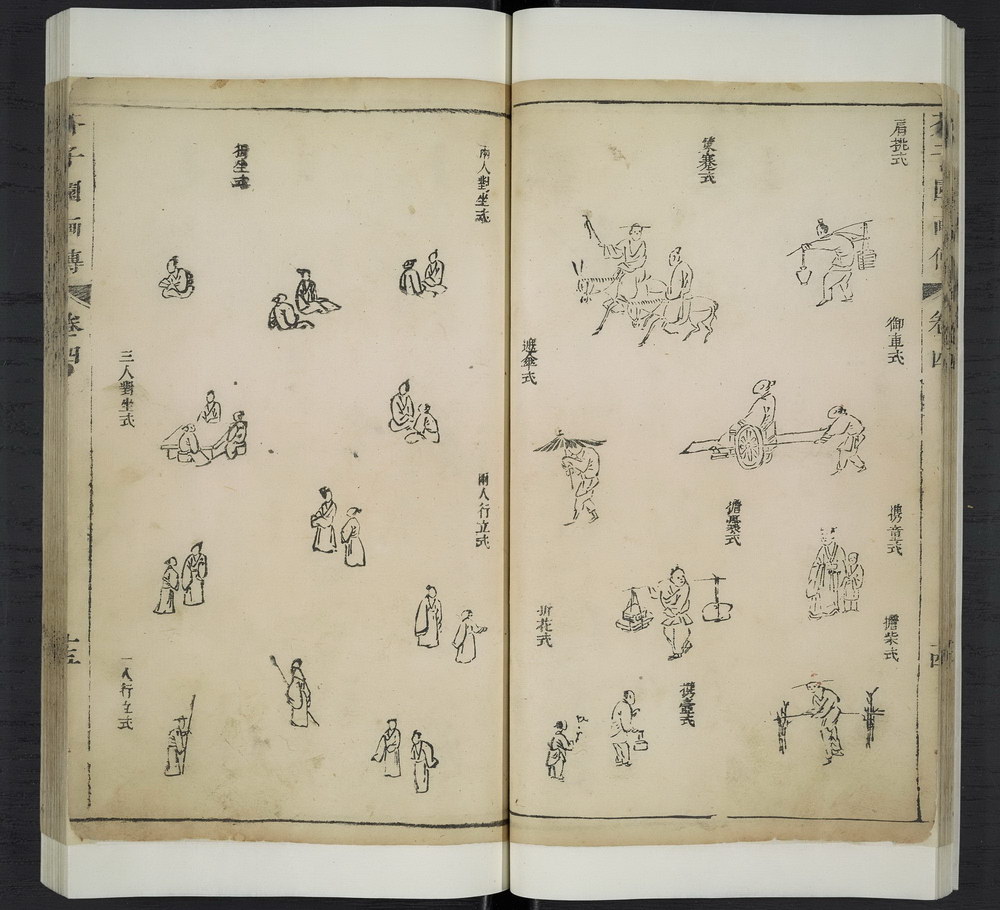 卷四
肩挑式
御車式
携童式
擔柴式
策蹇式
携壺式
遮傘式
折花式
兩人對坐式
兩人行立式
獨坐式
三人對坐式
一人行立式
子園畫傳
卷四
十三